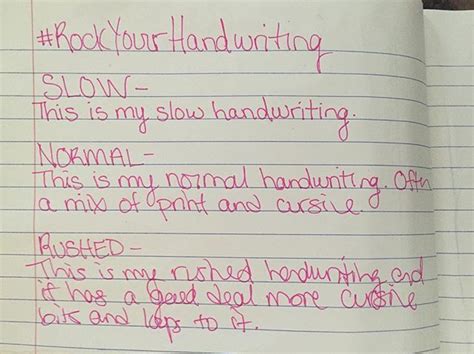 #RockYourHandwriting
SLOW-
This is my slow handwriting.
NORMAL-
This is my normal handwriting. Often
a mix of print and cursive.
RUSHED-
This is my rushed handwriting and
it has a good deal more cursive
bits and loops to it.